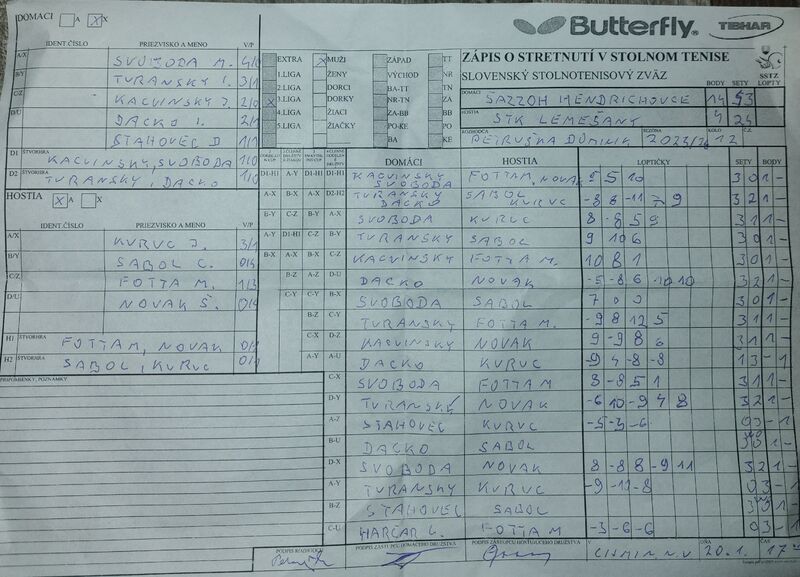 DOMÁCI A X X
Butterfly TIBHAR
IDENT.ČÍSLO PRIEZVISKO A MENO V/P
A/X SVOBODA M. 4/0
B/Y TURANSKY I. 3/1
C/Z KACVINSKY J. 2/0
D/U DACKO I. 2/1
STAHOVEC D 1/1
D1 ŠTVORHRA KACVINSKY, SVOBODA 1/0
D2 ŠTVORHRA TURANSKY, DACKO 1/0
HOSTIA X A X
IDENT.ČÍSLO PRIEZVISKO A MENO V/P
A/X KURUC J. 3/1
B/Y SABOL C. 0/4
C/Z FOTTA M. 1/3
D/U NOVAK Š. 0/4
H1 ŠTVORHRA FOTTA M, NOVAK 0/1
H2 ŠTVORHRA SABOL, KURUC 0/1
PRIPOMIENKY, POZNÁMKY
EXTRA X MUŽI ZÁPAD TT
1.LIGA ŽENY VÝCHOD NR
2.LIGA DORCI BA-TT TN
X 3.LIGA DORKY NR-TN ZA
4.LIGA ŽIACI ZA-BB BB
5.LIGA ŽIAČKY PO-KE PO
BA KE
ZÁPIS O STRETNUTÍ V STOLNOM TENISE
SLOVENSKÝ STOLNOTENISOVÝ ZVÄZ
SSTZ
BODY SETY LOPTY
DOMÁCI ŠAZZOH HENDRICHOVCE 14 53
HOSTIA STK LEMEŠANY 4 24
ROZHODCA PETRUŠKA DOMINIK SEZÓNA 2023/24 KOLO 12
DOMÁCI HOSTIA LOPTIČKY SETY BODY
D1-H1 A-Y D1-H1 D1-H1 KACVINSKY SVOBODA FOTTA M, NOVAK 5 10 3 0 1 -
A-X B-X D2-H2 TURANSKY DACKO SABOL KURUC -8 8 -11 7 9 3 2 1 -
B-Y C-Z B-Y A-X SVOBODA KURUC 8 -8 5 9 3 1 1 -
A-Y D1-H1 C-Z B-Y TURANSKY SABOL 9 10 6 3 0 1 -
B-X A-X B-X C-Z KACVINSKY FOTTA M. 10 8 1 3 0 1 -
B-Z A-Z D-U DACKO NOVAK -5 -8 6 10 10 3 2 1 -
C-Y C-Y B-X SVOBODA SABOL 7 3 0 1 -
B-Z C-Y TURANSKY FOTTA M. -9 8 12 5 3 1 1 -
C-X D-Z KACVINSKY NOVAK 9 -9 8 6 3 1 1 -
A-Y A-U DACKO KURUC -9 4 -8 -8 1 3 - 1
C-X SVOBODA FOTTA M 3 -8 5 1 3 1 1 -
D-Y TURANSKY NOVAK -6 10 -9 4 8 3 2 1 -
A-Z STAHOVEC KURUC -5 -3 -6 0 3 - 1
B-U DACKO SABOL 3 0 1 -
D-X SVOBODA NOVAK 8 -8 8 -9 11 3 2 1 -
A-Y TURANSKY KURUC -9 -11 -8 0 3 - 1
B-Z STAHOVEC SABOL 3 0 1 -
C-U HARČAR L. FOTTA M -3 -6 -6 0 3 - 1
PODPIS ROZHODCU PODPIS ZÁSTUPCU DOMÁCEHO DRUŽSTVA PODPIS ZÁSTUPCU HOSŤUJÚCEHO DRUŽSTVA V DŇA 20.1. 17